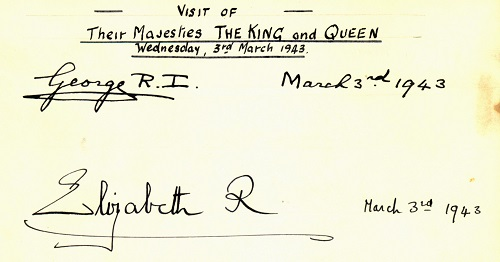 VISIT OF
Their Majesties THE KING and QUEEN
Wednesday, 3rd March 1943.
George R.I. March 3rd 1943
Elizabeth R March 3rd 1943